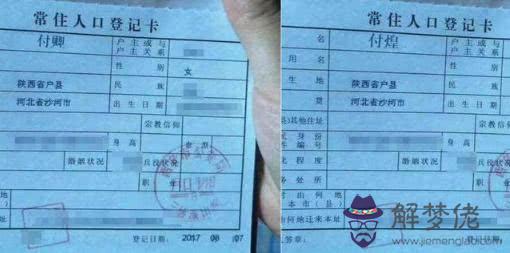 常住人口登记卡
付卿
户主或与
户主关系
性别
女
陕西省户县
民族
河北省沙河市
出生日期
宗教信仰
身高
血型
婚姻状况
兵役状况
职业
登记日期：2017 08 07
常住人口登记卡
名
付煌
户主或与
户主关系
用名
性别
生地
陕西省户县
民族
贯
河北省沙河市
出生日期
县)其他住址
宗教信仰
民身份
件编号
身高
化程度
婚姻状况
兵役状况
务处所
时由何地
本市(县)
时由何地迁来本址
人签章：
登记日期：
解梦佬
www.jiemenglao.com